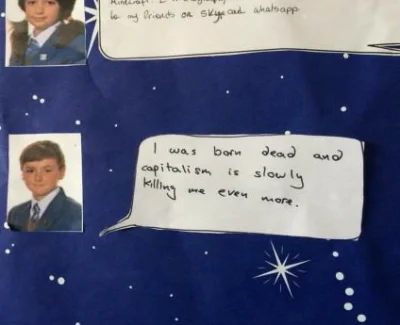 Minecraft. I
to my friends on Skype and whatsapp
I was born dead and
capitalism is slowly
killing me even more.